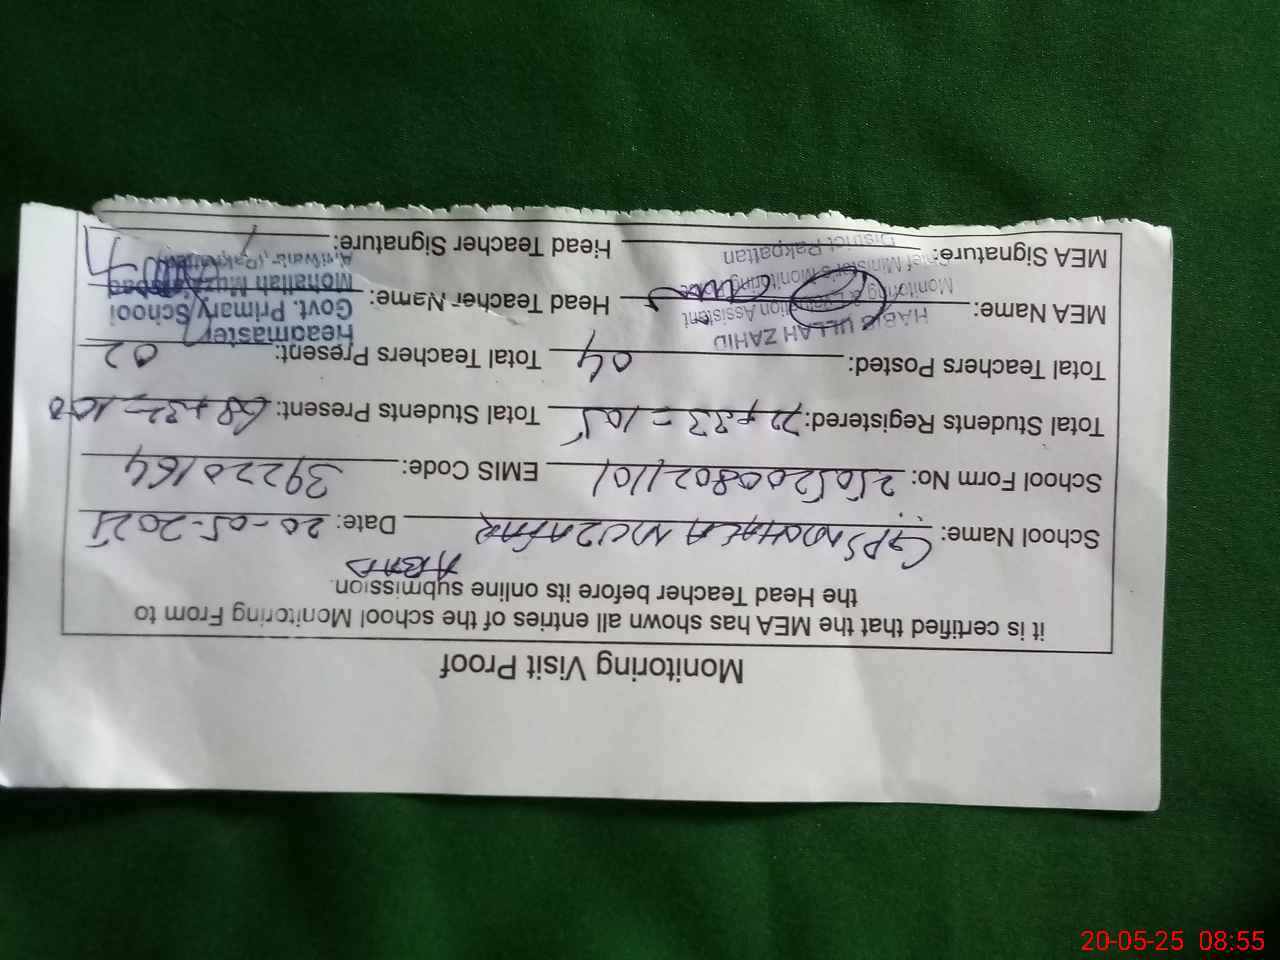 Monitoring Visit Proof
it is certified that the MEA has shown all entries of the school Monitoring From to
the Head Teacher before its online submission.
School Name: GPS MOHALA MUZAFAR ABAD Date: 20-05-2025
School Form No: 25052008021101 EMIS Code: 39220164
Total Students Registered: 72+33=105 Total Students Present: 68+32=100
Total Teachers Posted: 04 Total Teachers Present: 02
MEA Name: Head Teacher Name:
MEA Signature: Head Teacher Signature:
HABIB ULLAH ZAHID
Monitoring & Evaluation Assistant
Chief Minister's Monitoring
District Pakpattan
Headmaster
Govt. Primary School
Mohallah
20-05-25 08:55